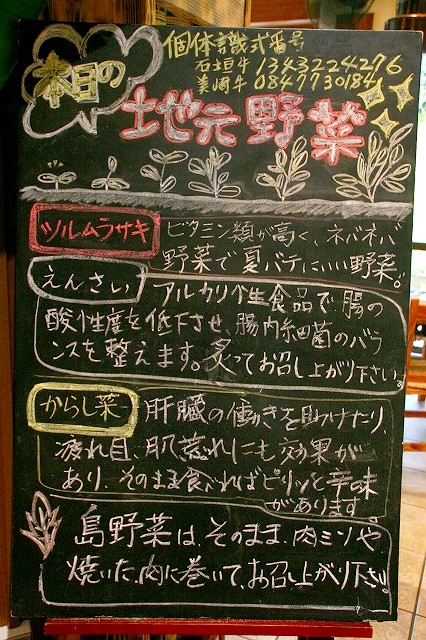 個体識式番号
石垣牛 1343224276
美崎牛 0847730184
本日の
土地元野菜
ツルムラサキ
ビタミン類が高く、ネバネバ
野菜で夏バテにいい野菜。
えんさい
アルカリ个生食品で腸の
酸性度を低下させ、腸内細菌のバラ
ンスを整えます。炙ってお召し上がり下さい。
からし菜
肝臓の働きを助けたり、
疲れ目、肌荒れにも効果が
あり、そのまま食べればピリッと辛味
があります
島野菜は、そのまま、肉ミソや
焼いた肉に巻いて、お召し上がり下さい。